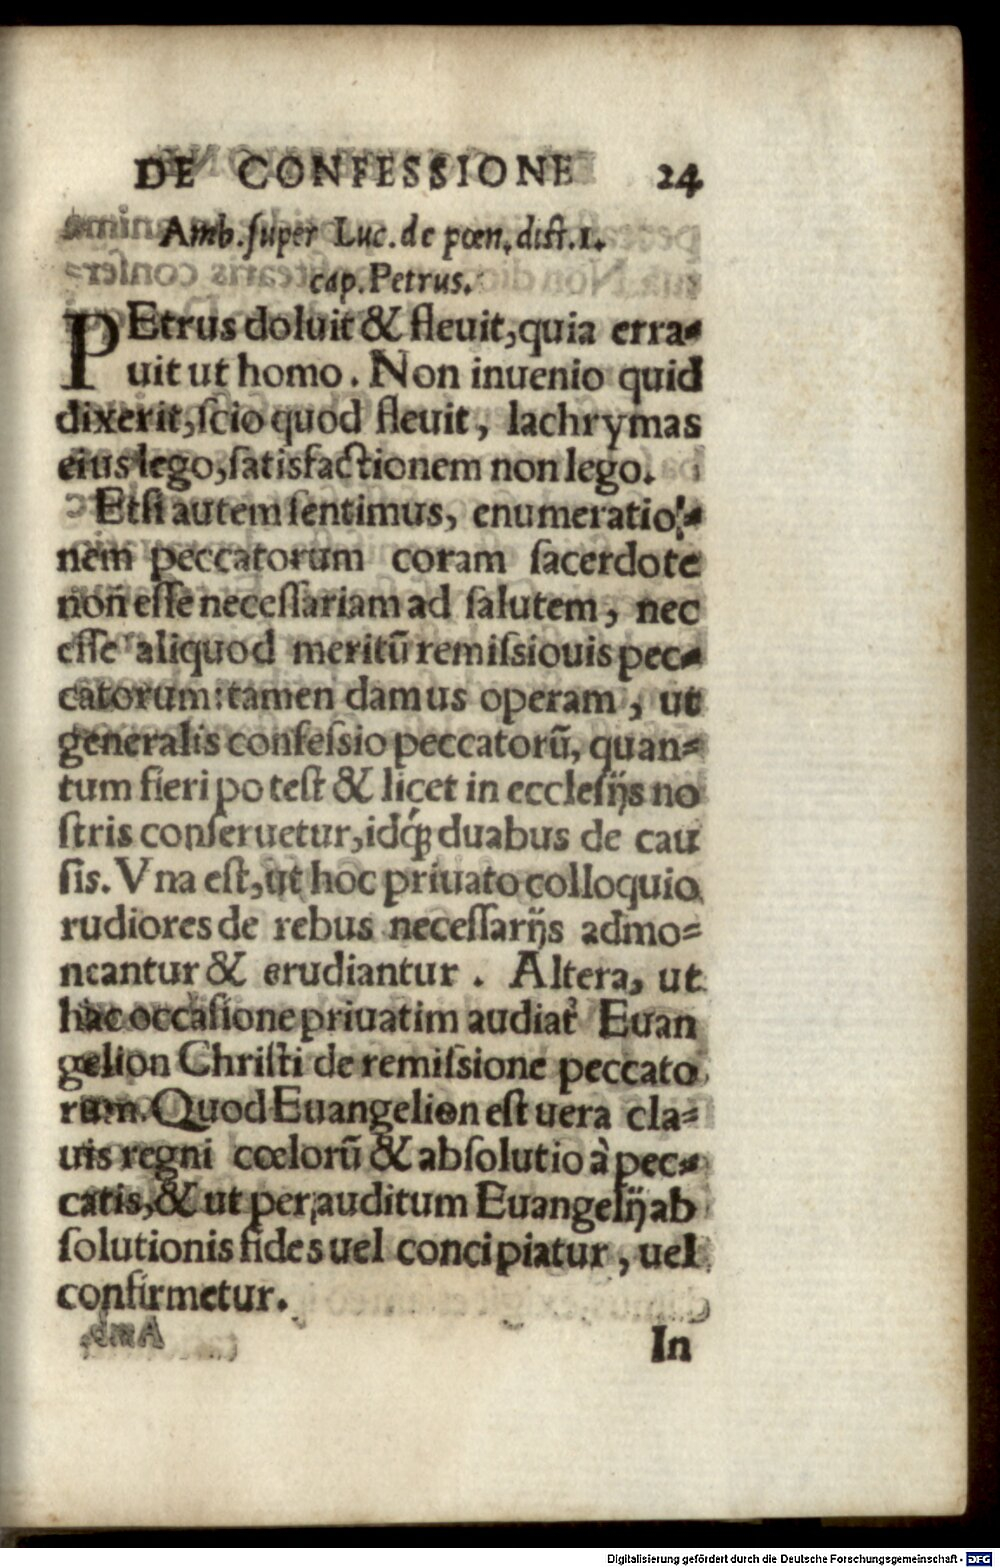 DE CONFESSIONE 24
Amb. ſuper Luc. de pœn. diſt. 1.
cap. Petrus.
PEtrus doluit & fleuit, quia erra-
uit ut homo. Non inuenio quid
dixerit, ſcio quod fleuit, lachrymas
eius lego, ſatisfactionem non lego.
Etſi autem ſentimus, enumeratio-
nem peccatorum coram ſacerdote
non eſſe neceſſariam ad ſalutem, nec
eſſe aliquod meritũ remiſsiouis pec-
catorum: tamen damus operam, ut
generalis confeſsio peccatorũ, quan-
tum fieri po teſt & licet in eccleſijs no
ſtris conſeruetur, idq́ꝫ duabus de cau
ſis. Vna eſt, ut hoc priuato colloquio
rudiores de rebus neceſſarijs admo-
neantur & erudiantur. Altera, ut
hac occaſione priuatim audiat᷑ Euan
gelion Chriſti de remiſsione peccato
rum. Quod Euangelion eſt uera cla-
uis regni cœlorũ & abſolutio à pec-
catis, & ut per auditum Euangelij ab
ſolutionis fides uel concipiatur, uel
confirmetur.
In
Digitalisierung gefördert durch die Deutsche Forschungsgemeinschaft - DFG